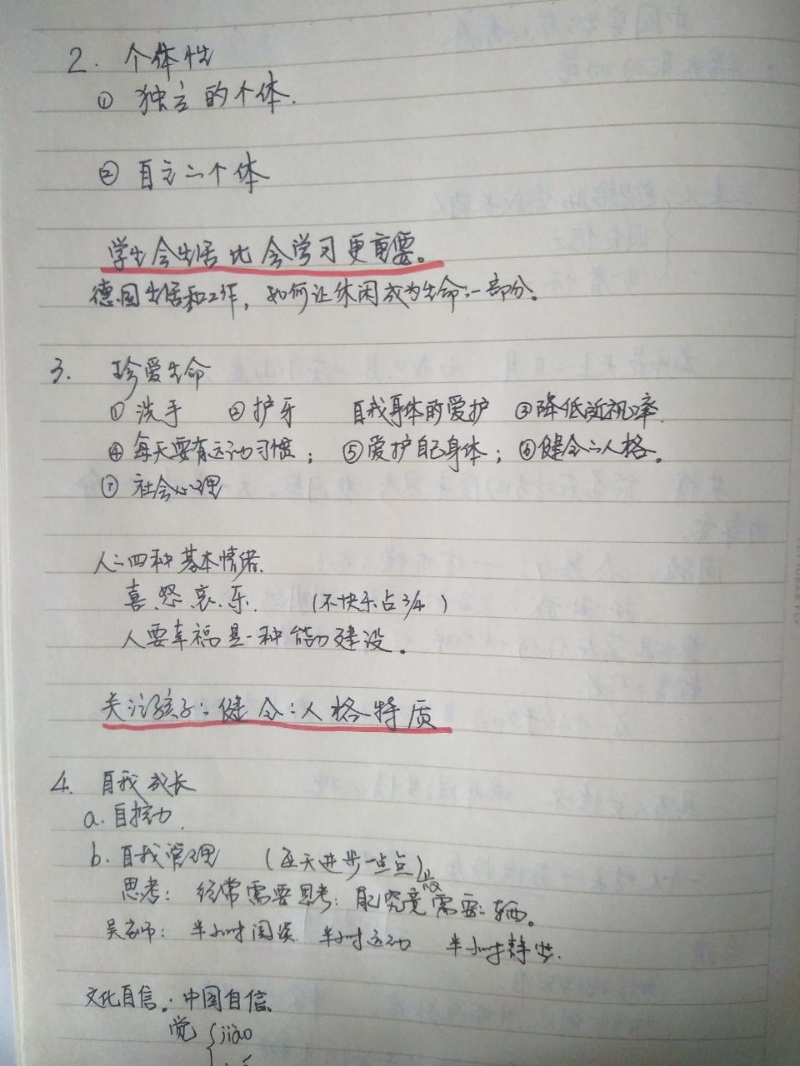 2. 个体性
① 独立的个体.
② 自主的个体
学生会生活比会学习更重要。
德国生活和工作，如何让休闲成为生命的一部分。
3. 珍爱生命
① 洗手 ② 护牙 自我身体的爱护 ③降低近视率.
④ 每天要有运动习惯； ⑤爱护自己身体； ⑥健全的人格。
⑦ 社会心理
人的四种基本情绪.
喜.怒.哀.乐. (不快乐占3/4)
人要幸福是一种能力建设。
关注孩子的健全的人格特质
4. 自我成长
a. 自控力.
b. 自我管理 (每天进步一点点)
思考：经常需要思考：究竟需要
吴老师：半小时阅读 半小时运动 半小时静坐.
文化自信。中国自信.
觉 { jiào